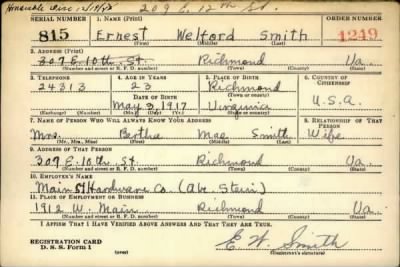 Honorable Disc 209 E. 12th St.
SERIAL NUMBER 1. NAME (Print) ORDER NUMBER
815 Ernest Welford Smith 1249
(First) (Middle) (Last)
2. ADDRESS (Print)
309 E. 10th St. Richmond Va
(Number and street or R. F. D. number) (Town) (County) (State)
3. TELEPHONE 4. AGE IN YEARS 5. PLACE OF BIRTH 6. COUNTRY OF CITIZENSHIP
24313 23 Richmond
DATE OF BIRTH (Town or county)
May 3, 1917 Virginia U.S.A.
(Mo.) (Day) (Yr.) (State or country)
7. NAME OF PERSON WHO WILL ALWAYS KNOW YOUR ADDRESS 8. RELATIONSHIP OF THAT PERSON
Mrs. Bertha Mae Smith Wife
(Mr., Mrs., Miss) (First) (Middle) (Last)
9. ADDRESS OF THAT PERSON
309 E. 10th St. Richmond Va.
(Number and street or R. F. D. number) (Town) (County) (State)
10. EMPLOYER'S NAME
Main St Hardware Co. (Abe
11. PLACE OF EMPLOYMENT OR BUSINESS
1912 W. Main Richmond Va
(Number and street or R. F. D. number) (Town) (County) (State)
I AFFIRM THAT I HAVE VERIFIED ABOVE ANSWERS AND THAT THEY ARE TRUE.
REGISTRATION CARD
D. S. S. Form 1 (over) E. W. Smith
(Registrant's signature)